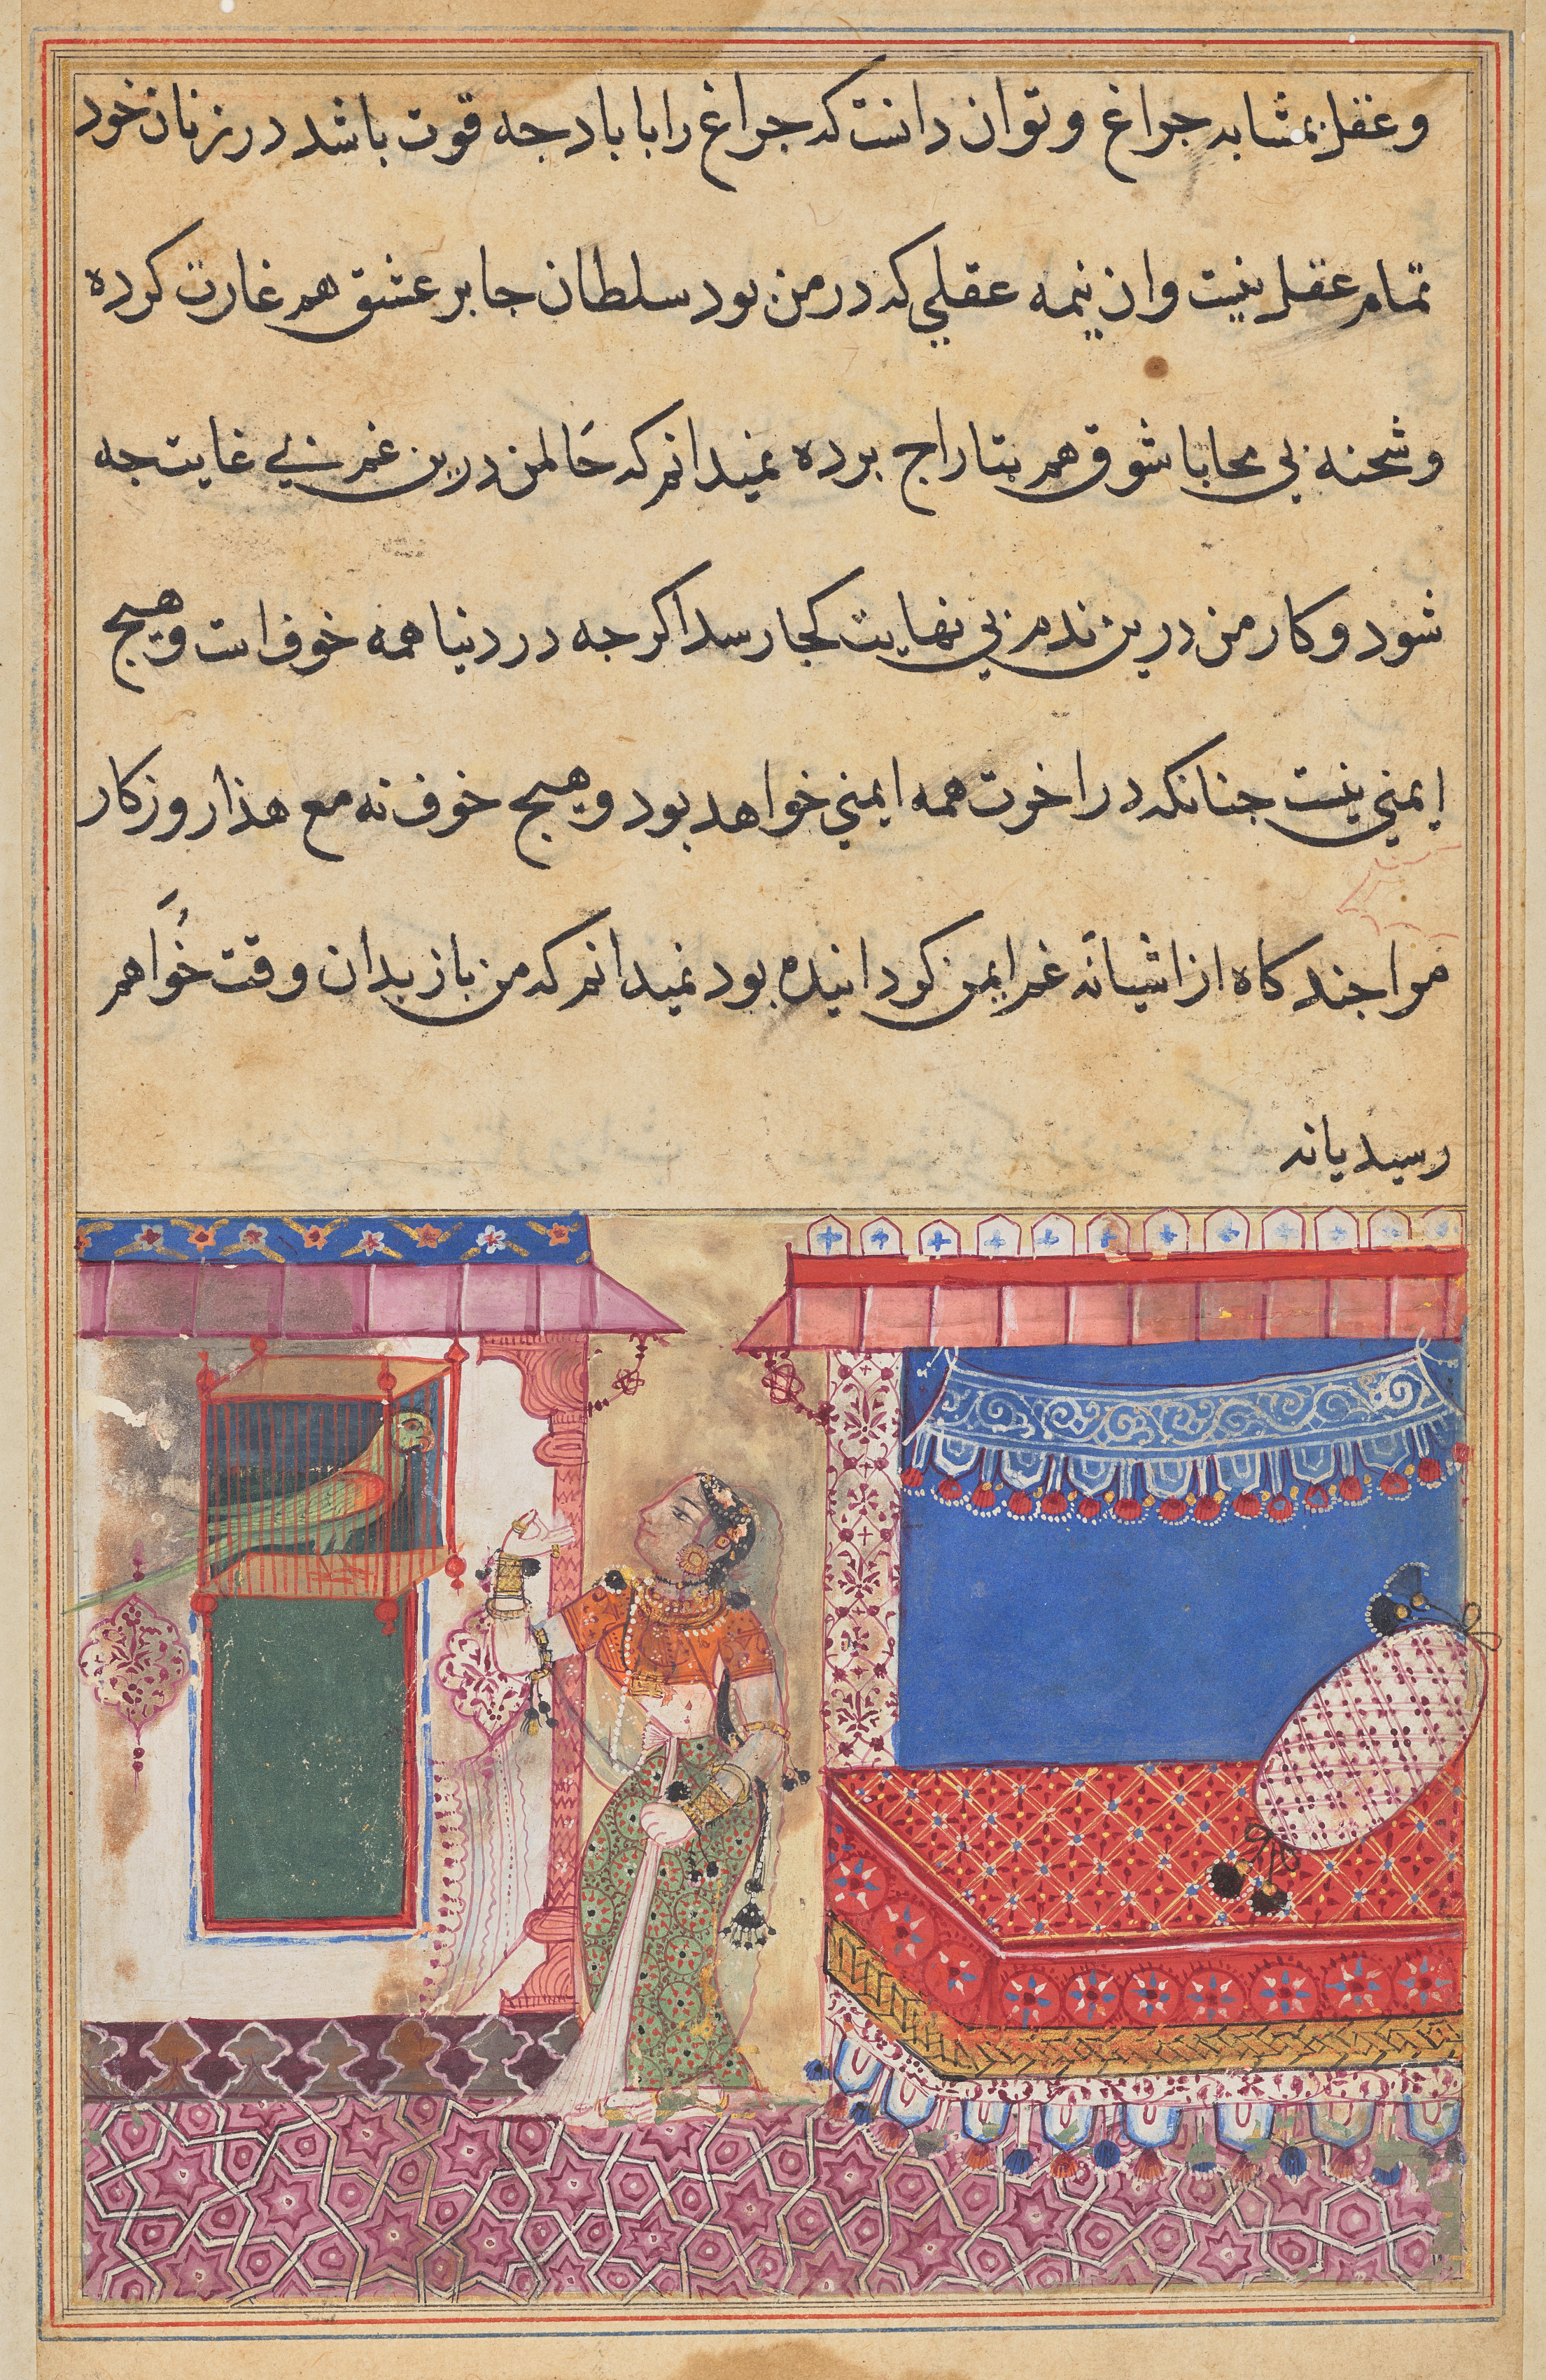 وعقل بمشابه جراغ وتوان دانست که جراغ را با باد جه قوت باشد در زنان خود
تمام عقل نیست وان نیمه عقلی که در من بود سلطان جابر عشق هم غارت کرده
وشحنه بی محابا شوق هم بتاراج برده نمیدانم که حَال من درین غم بی غایت جه
شود وکار من درین ندم بی نهایت کجا رسد اکر جه در دنیا همه خوف است وهیج
ایمنی نیست جنانکه در اخرت همه ایمنی خواهد بود وهیج خوف نه مع هذا روزکار
مرا جند کاه از اشیانه غم ایمن کردانیده بود نمیدانم که من باز بدان وقت خواهم
رسید یا نه